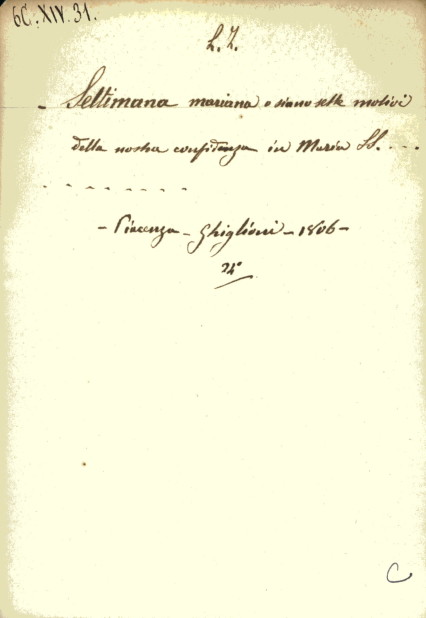 6C. XIV. 31.
L. Z.
- Settimana mariana o siano sette motivi
della nostra confidenza in Maria SS. ....
- - - - - - - - -
- Piacenza - Ghiglioni - 1806 -
24°
C